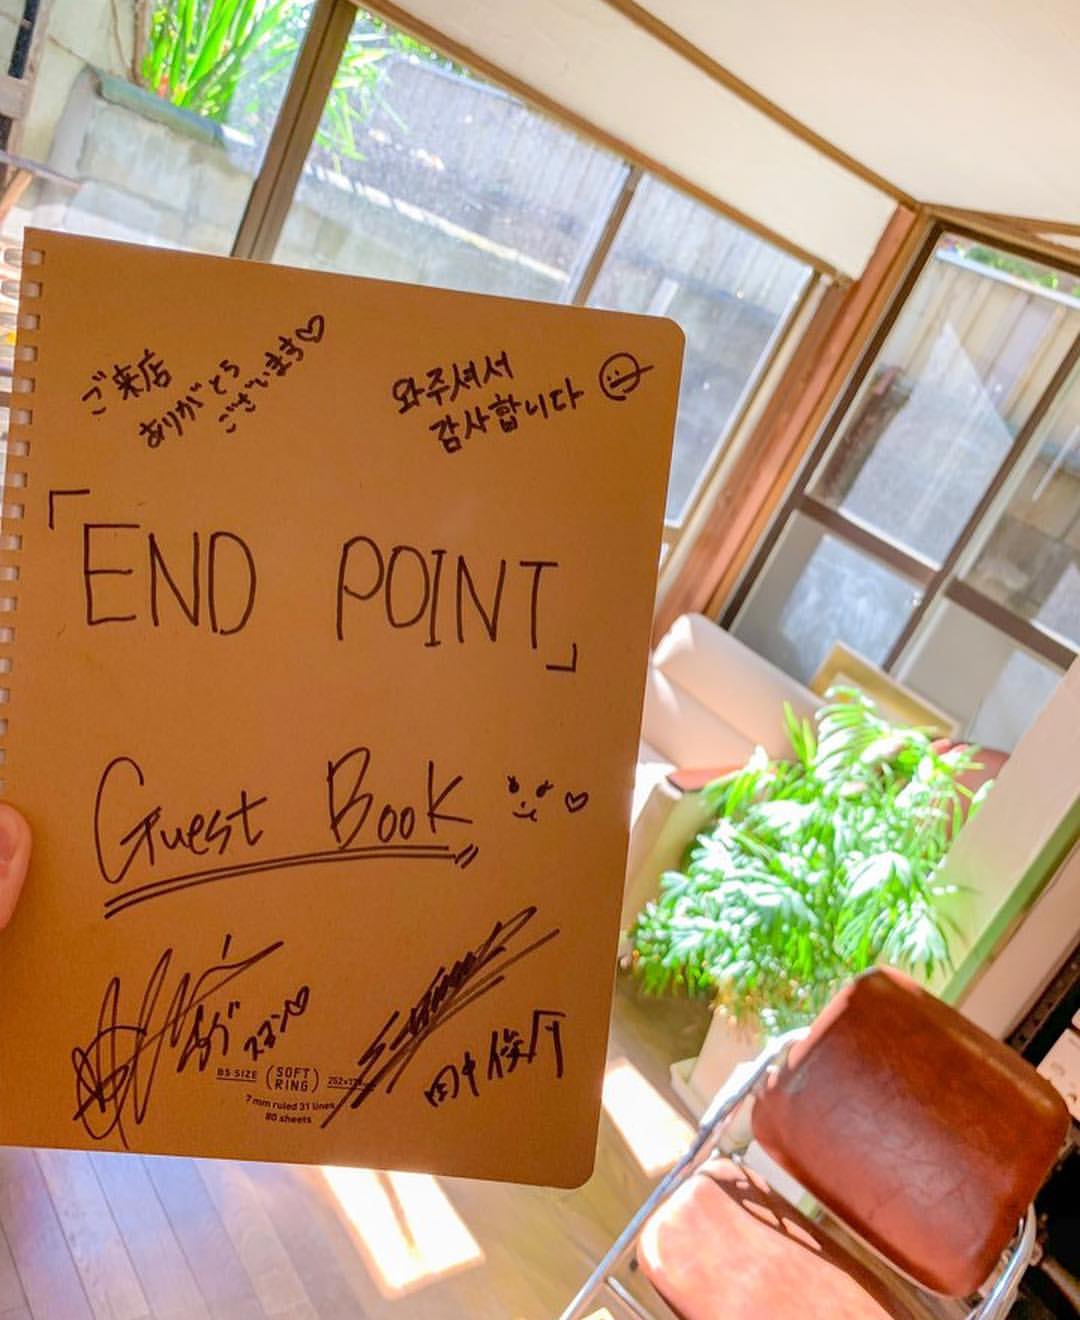 ご来店
ありがとう
ございます♡
와주셔서
감사합니다
「END POINT」
Guest Book
B5 SIZE (SOFT RING)
7mm ruled 31 lines
80 sheets